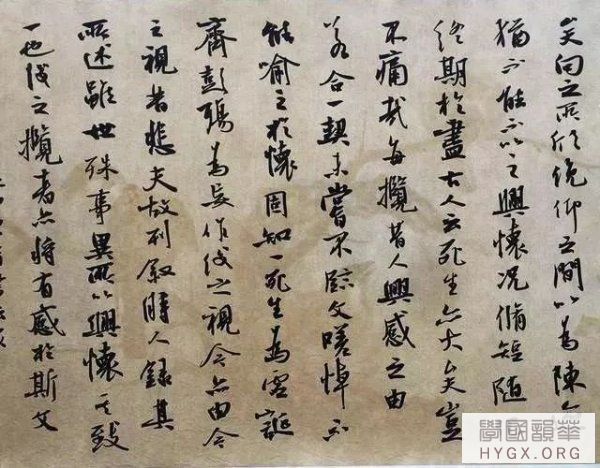 矣向之所欣俛仰之間以為陳
猶不能不以之興懷况脩短隨
終期於盡古人云死生亦大矣豈
不痛哉每攬昔人興感之由
若合一契未嘗不臨文嗟悼不
能喻之於懷固知一死生為虛誕
齊彭殤為妄作後之視今亦由今
之視昔悲夫故列敘時人錄其
所述雖世殊事異所以興懷其致
一也後之攬者亦將有感於斯文
學國韻華
HYGX.ORG